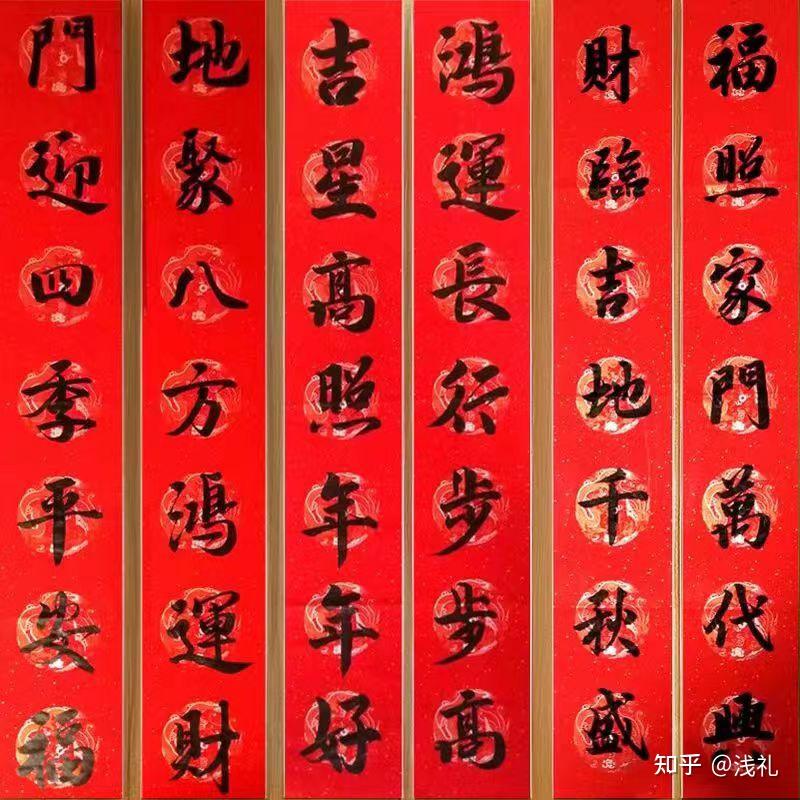 門迎四季平安福
地聚八方鴻運財
吉星高照年年好
鴻運長行步步高
財臨吉地千秋盛
福照家門萬代興
知乎 @浅礼